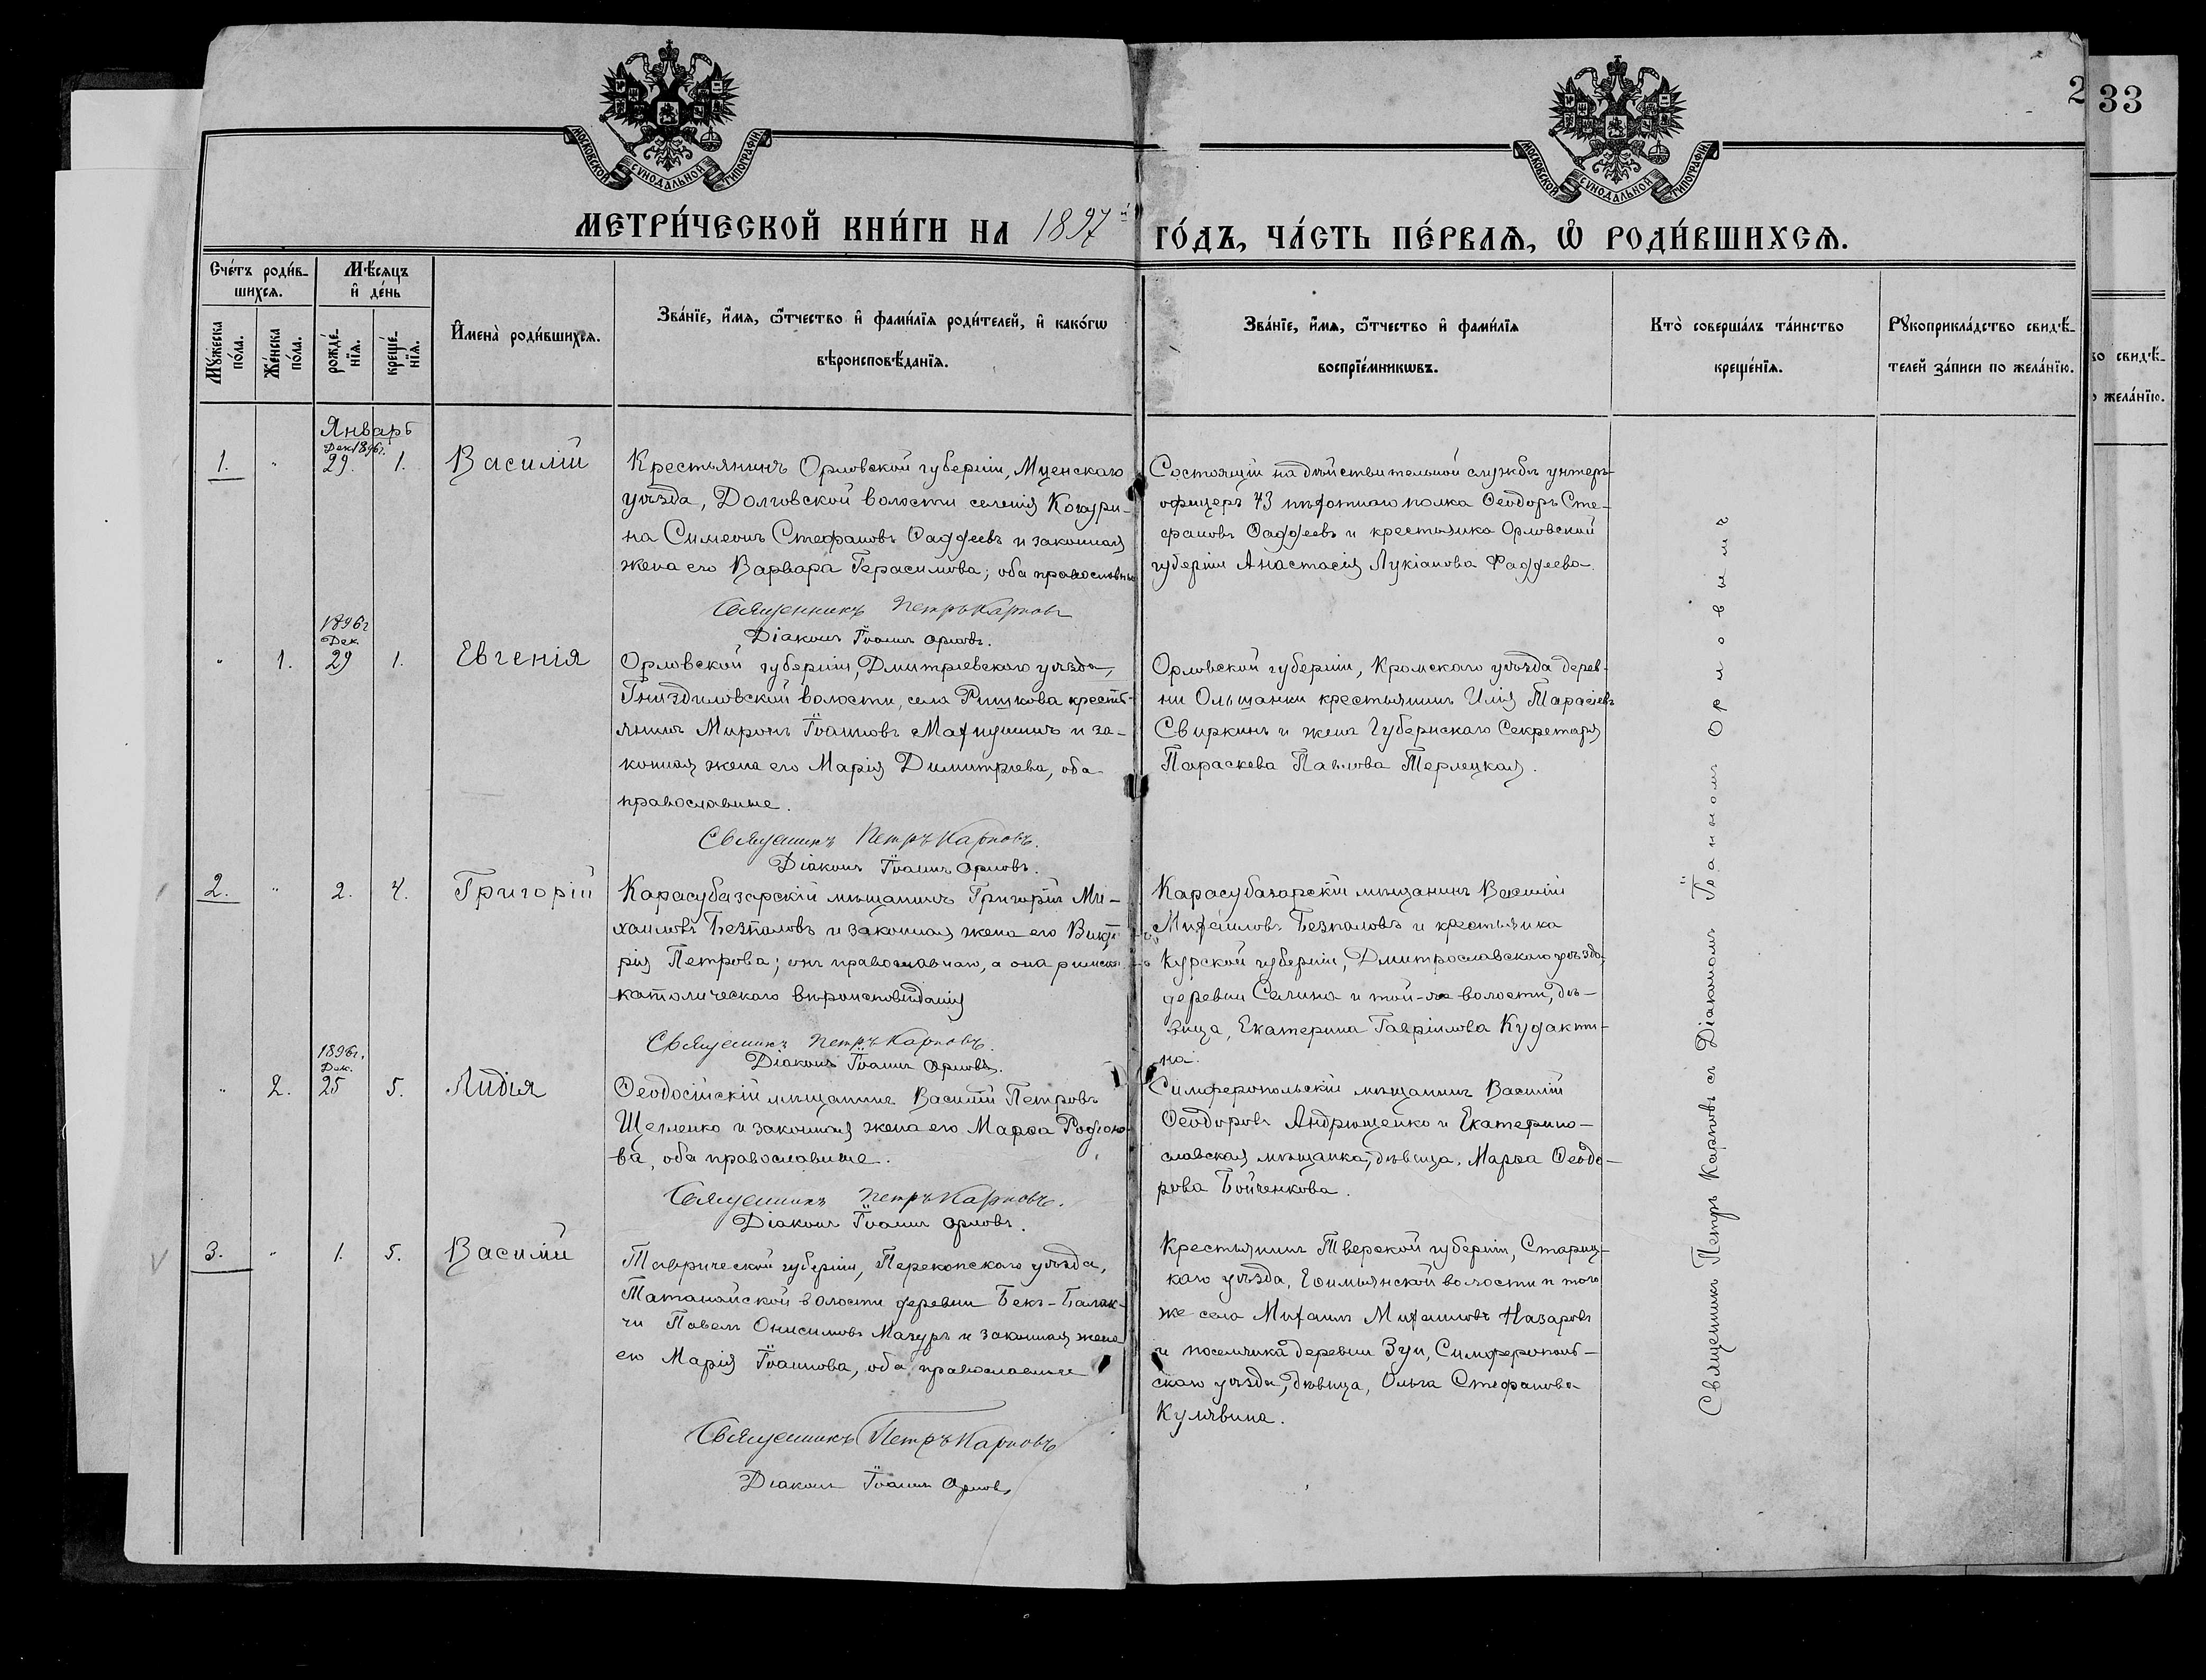 МОСКОВСКОЙ СѴНОДАЛЬНОЙ ТИПОГРАФІИ
МОСКОВСКОЙ СѴНОДАЛЬНОЙ ТИПОГРАФІИ
2
33
МЕТРИ́ЧЕСКОЙ КНИ́ГИ НА 1897й
ГО́ДЪ, ЧА́СТЬ ПЕ́РВАЯ, Ѡ РОДИ́ВШИХСЯ.
Сче́тъ роди́в-
шихся.
Мѣ́сяцъ
и де́нь
Му́жеска
по́ла.
Же́нска
по́ла.
рожде́-
нїя.
креще́-
нїя.
Имена̀ роди́вшихся.
Зва́нїе, и́мя, ѻ́тчество и фами́лїя роди́телей, и како́гѡ
вѣроисповѣ́данїя.
Зва́нїе, и́мя, ѻ́тчество и фами́лїя
воспрїе́мникѡвъ.
Кто̀ соверша́лъ та́инство
креще́нїя.
Рꙋкоприкла́дство свидѣ́-
телей за́писи по жела́нїю.
во свидѣ́-
о жела́нїю.
Январь
Дек 1896г.
1. " 29. 1. Василій
Крестьянинъ Орловской губерніи, Мценскаго
уѣзда, Долговской волости селенія Кочури-
на Симеонъ Стефановъ Ѳаддеевъ и законная
жена его Варвара Герасимова; оба православны
Священникъ Петръ Карповъ
Діаконъ Іоаннъ Орловъ.
Состоящій на дѣйствительной службѣ унтеръ-
офицеръ 73 пѣхотнаго полка Ѳеодоръ Сте-
фановъ Ѳаддеевъ и крестьянка Орловской
губерніи Анастасія Лукіанова Фаддеева.
1896г
Дек.
" 1. 29 1. Евгенія
Орловской губерніи, Дмитріевскаго уѣзда,
Гниздиловской волости, села Рышкова кресть-
янинъ Миронъ Іоанновъ Махнушинъ и за-
конная жена его Марія Димитріева, оба
православные.
Священникъ Петръ Карповъ.
Діаконъ Іоаннъ Орловъ.
Орловской губерніи, Кромскаго уѣзда дерев-
ни Ольшанки крестьянинъ Илія Тарасіевъ
Свиркинъ и жена Губернскаго Секретаря
Параскева Павлова Терлецкая.
2. " 2. 4. Григорій
Карасубазарскій мѣщанинъ Григорій Ми-
хаиловъ Безпаловъ и законная жена его Викто-
рія Петрова; онъ православнаго, а она римско-
католическаго вѣроисповѣданія
Священникъ Петръ Карповъ.
Діаконъ Іоаннъ Орловъ.
Карасубазарскій мѣщанинъ Василій
Михаиловъ Безпаловъ и крестьянка
Курской губерніи, Дмитрославскаго уѣзда,
деревни Селина и той-же волости, дѣ-
вица, Екатерина Гавріилова Кудакти-
на.
1896г.
Дек.
" 2. 25 5. Лидія
Ѳеодосійскій мѣщанинъ Василій Петровъ
Щегленко и законная жена его Марѳа Родіоно-
ва, оба православные.
Священникъ Петръ Карповъ.
Діаконъ Іоаннъ Орловъ.
Симферопольскій мѣщанинъ Василій
Ѳеодоровъ Андрющенко и Екатерино-
славская мѣщанка, дѣвица, Марѳа Ѳеодо-
рова Бойченкова.
3. " 1. 5. Василій
Таврической губерніи, Перекопскаго уѣзда,
Татанайской волости деревни Бекъ-Балак-
чи Павелъ Онисимовъ Мазуръ и законная жена
его Марія Іоаннова, оба православные
Священникъ Петръ Карповъ
Діаконъ Іоаннъ Орловъ
Крестьянинъ Тверской губерніи, Стариц-
каго уѣзда, волости и того
же села Михаилъ Михаиловъ Назаровъ
и поселянка деревни Зуи, Симферополь-
скаго уѣзда, дѣвица, Ольга Стефанова
Кулявина.
Священникъ Петръ Карповъ съ Діакономъ Іоанномъ Орловымъ